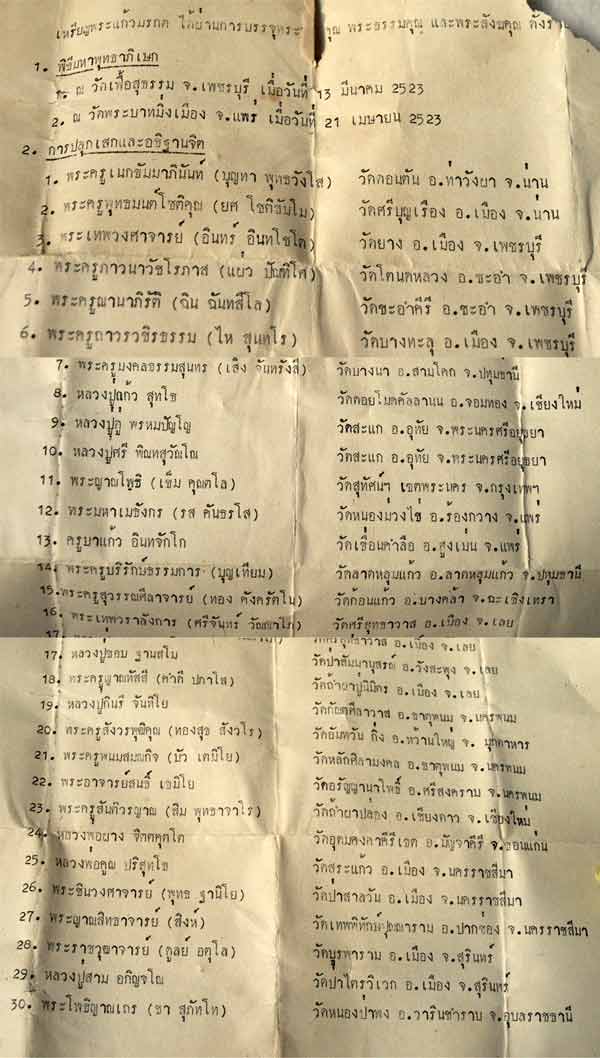 เหรียญพระแก้วมรกต ได้ผ่านการบรรจุพระ คุณ พระธรรมคุณ และพระสังฆคุณ ดังร
1. พิธีมหาพุทธาภิเษก
1. ณ วัดเฟื้อสุธรรม จ.เพชรบุรี เมื่อวันที่ 13 มีนาคม 2523
2. ณ วัดพระบาทมิ่งเมือง จ.แพร่ เมื่อวันที่ 21 เมษายน 2523
2. การปลุกเสกและอธิฐานจิต
1. พระครูเนกขัมมาภินันท์ (บุญทา พุทธวังโส) วัดดอนตัน อ.ท่าวังผา จ.น่าน
2. พระครูพุทธมนต์โชติคุณ (ยศ โชติธัมโม) วัดศรีบุญเรือง อ.เมือง จ.น่าน
3. พระเทพวงศาจารย์ (อินทร์ อินทโชโต) วัดยาง อ.เมือง จ.เพชรบุรี
4. พระครูภาวนาวัชโรภาส (แผ่ว ปัณฑิโต) วัดโตนดหลวง อ.ชะอำ จ.เพชรบุรี
5. พระครูญานาภิรัติ (ฉิน ฉันทสีโล) วัดชะอำคีรี อ.ชะอำ จ.เพชรบุรี
6. พระครูถาวรวชิรธรรม (ไห สุนทโร) วัดบางทะลุ อ.เมือง จ.เพชรบุรี
7. พระครูมงคลธรรมสุนทร (เส็ง จันทรังสี) วัดบางนา อ.สามโคก จ.ปทุมธานี
8. หลวงปู่แก้ว สุทโช วัดดอยโมคคัลลานน อ.จอมทอง จ.เชียงใหม่
9. หลวงปู่ดู่ พรหมปัญโญ วัดสะแก อ.อุทัย จ.พระนครศรีอยุธยา
10. หลวงปู่ศรี พิณทสุวัณโณ วัดสะแก อ.อุทัย จ.พระนครศรีอยุธยา
11. พระญาณโพธิ (เข็ม คุณตโล) วัดสุทัศน์ฯ เขตพระนคร จ.กรุงเทพฯ
12. พระมหาเมธังกร (รส คันธรโส) วัดหนองม่วงไข่ อ.ร้องกวาง จ.แพร่
13. ครูบาแก้ว อินทจักโก วัดเขื่อนคำลือ อ.สูงเม่น จ.แพร่
14. พระครูบริรักษ์ธรรมการ (บุญเทียม) วัดลาดหลุมแก้ว อ.ลาดหลุมแก้ว จ.ปทุมธานี
15. พระครูสุวรรณศีลาจารย์ (ทอง คังครัตโน) วัดก้อนแก้ว อ.บางคล้า จ.ฉะเชิงเทรา
16. พระเทพวราลังการ (ศรีจันทร์ วัณณาโภ) วัดศรีสุทธาวาส อ.เมือง จ.เลย
17. หลวงปู่ชอบ ฐานสโม วัดป่าสัมมานุสรณ์ อ.วังสะพุง จ.เลย
18. พระครูญาณทัสสี (คำดี ปภาโส) วัดถ้ำผาปู่นิมิตร อ.เมือง จ.เลย
19. หลวงปู่กินรี จันทิโย วัดกัณตศีลาวาส อ.ธาตุพนม จ.นครพนม
20. พระครูสังวรพุฒิคุณ (ทองสุข สังวโร) วัดอัมพวัน กิ่ง อ.หว้านใหญ่ จ. มุกดาหาร
21. พระครูพนมสมณกิจ (บัว เตมิโย) วัดหลักศิลามงคล อ.ธาตุพนม จ.นครพนม
22. พระอาจารย์สนธิ์ เขมิโย วัดอรัญญานาโพธิ์ อ.ศรีสงคราม จ.นครพนม
23. พระครูสันติวรญาณ (สิม พุทธาจาโร) วัดถ้ำผาปล่อง อ.เชียงดาว จ.เชียงใหม่
24. หลวงพ่อผาง จิตตคุตโต วัดอุดมคงคาคีรีเขต อ.มัญจาคีรี จ.ขอนแก่น
25. หลวงพ่อคูณ ปริสุทโธ วัดสระแก้ว อ.เมือง จ.นครราชสีมา
26. พระชินวงศาจารย์ (พุทธ ฐานิโย) วัดป่าสาลวัน อ.เมือง จ.นครราชสีมา
27. พระญาณสิทธาจารย์ (สิงห์) วัดเทพพิทักษ์ปุณณาราม อ.ปากช่อง จ.นครราชสีมา
28. พระราชวุฒาจารย์ (ดูลย์ อตุโล) วัดบูรพาราม อ.เมือง จ.สุรินทร์
29. หลวงปู่สาม อกิญจโณ วัดป่าไตรวิเวก อ.เมือง จ.สุรินทร์
30. พระโพธิญาณเถร (ชา สุภัทโท) วัดหนองป่าพง อ.วารินชำราบ จ.อุบลราชธานี